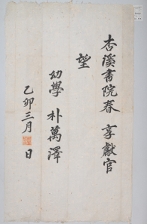 杏溪書院春享獻官
望
幼學 朴萬澤
乙卯三月 日